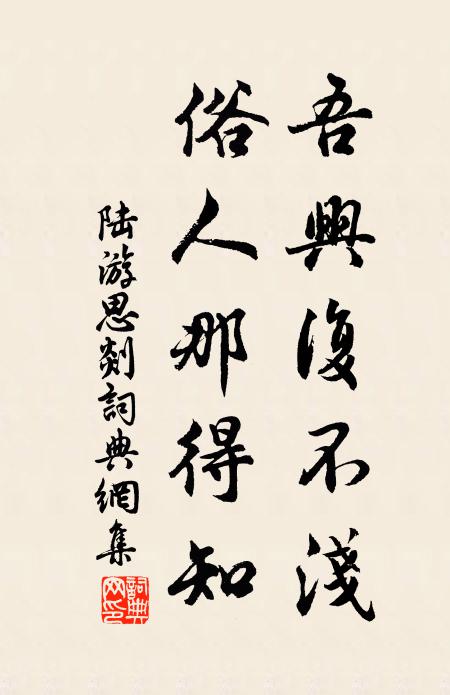 吾興復不淺
俗人那得知
陸游思剡詞典網集
詞典網印